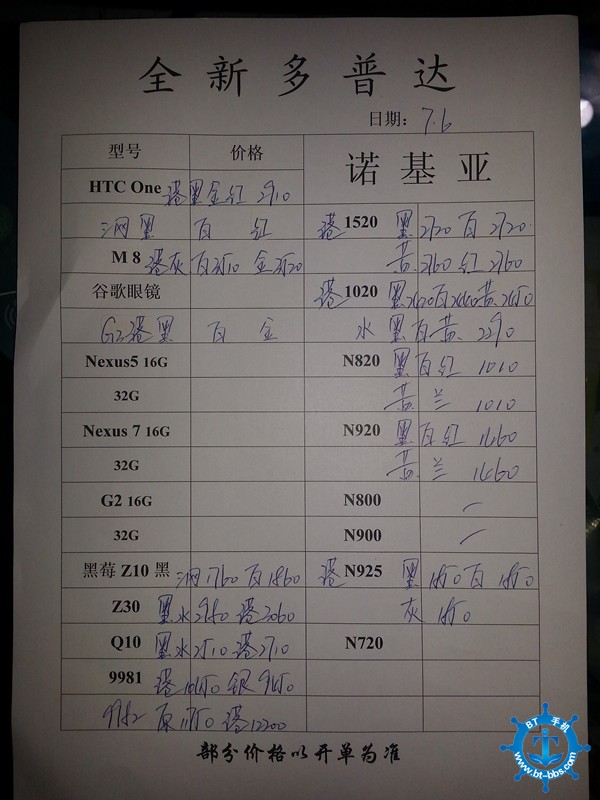 全新多普达
日期: 7.6
型号 价格 诺基亚
HTC One 港黑金红 2910
三网黑 白 红 港 1520 黑 2720 白 2720
M 8 港灰 白 金 黄 2760 红 2760
谷歌眼镜 港 1020 黑 白 黄
G2港黑 白 金 水 黑白黄 2290
Nexus5 16G N820 黑白红 1010
32G 黄 兰 1010
Nexus 7 16G N920 黑白红 1460
32G 黄 兰 1460
G2 16G N800 —
32G N900 —
黑莓 Z10 黑 三网1760 白1860 港 N925 黑 白
Z30 黑水 港3060 灰
Q10 黑水 港2710 N720
9981 港 银
原 港12200
部分价格以开单为准
BT 手机
www.bt-bbs.com